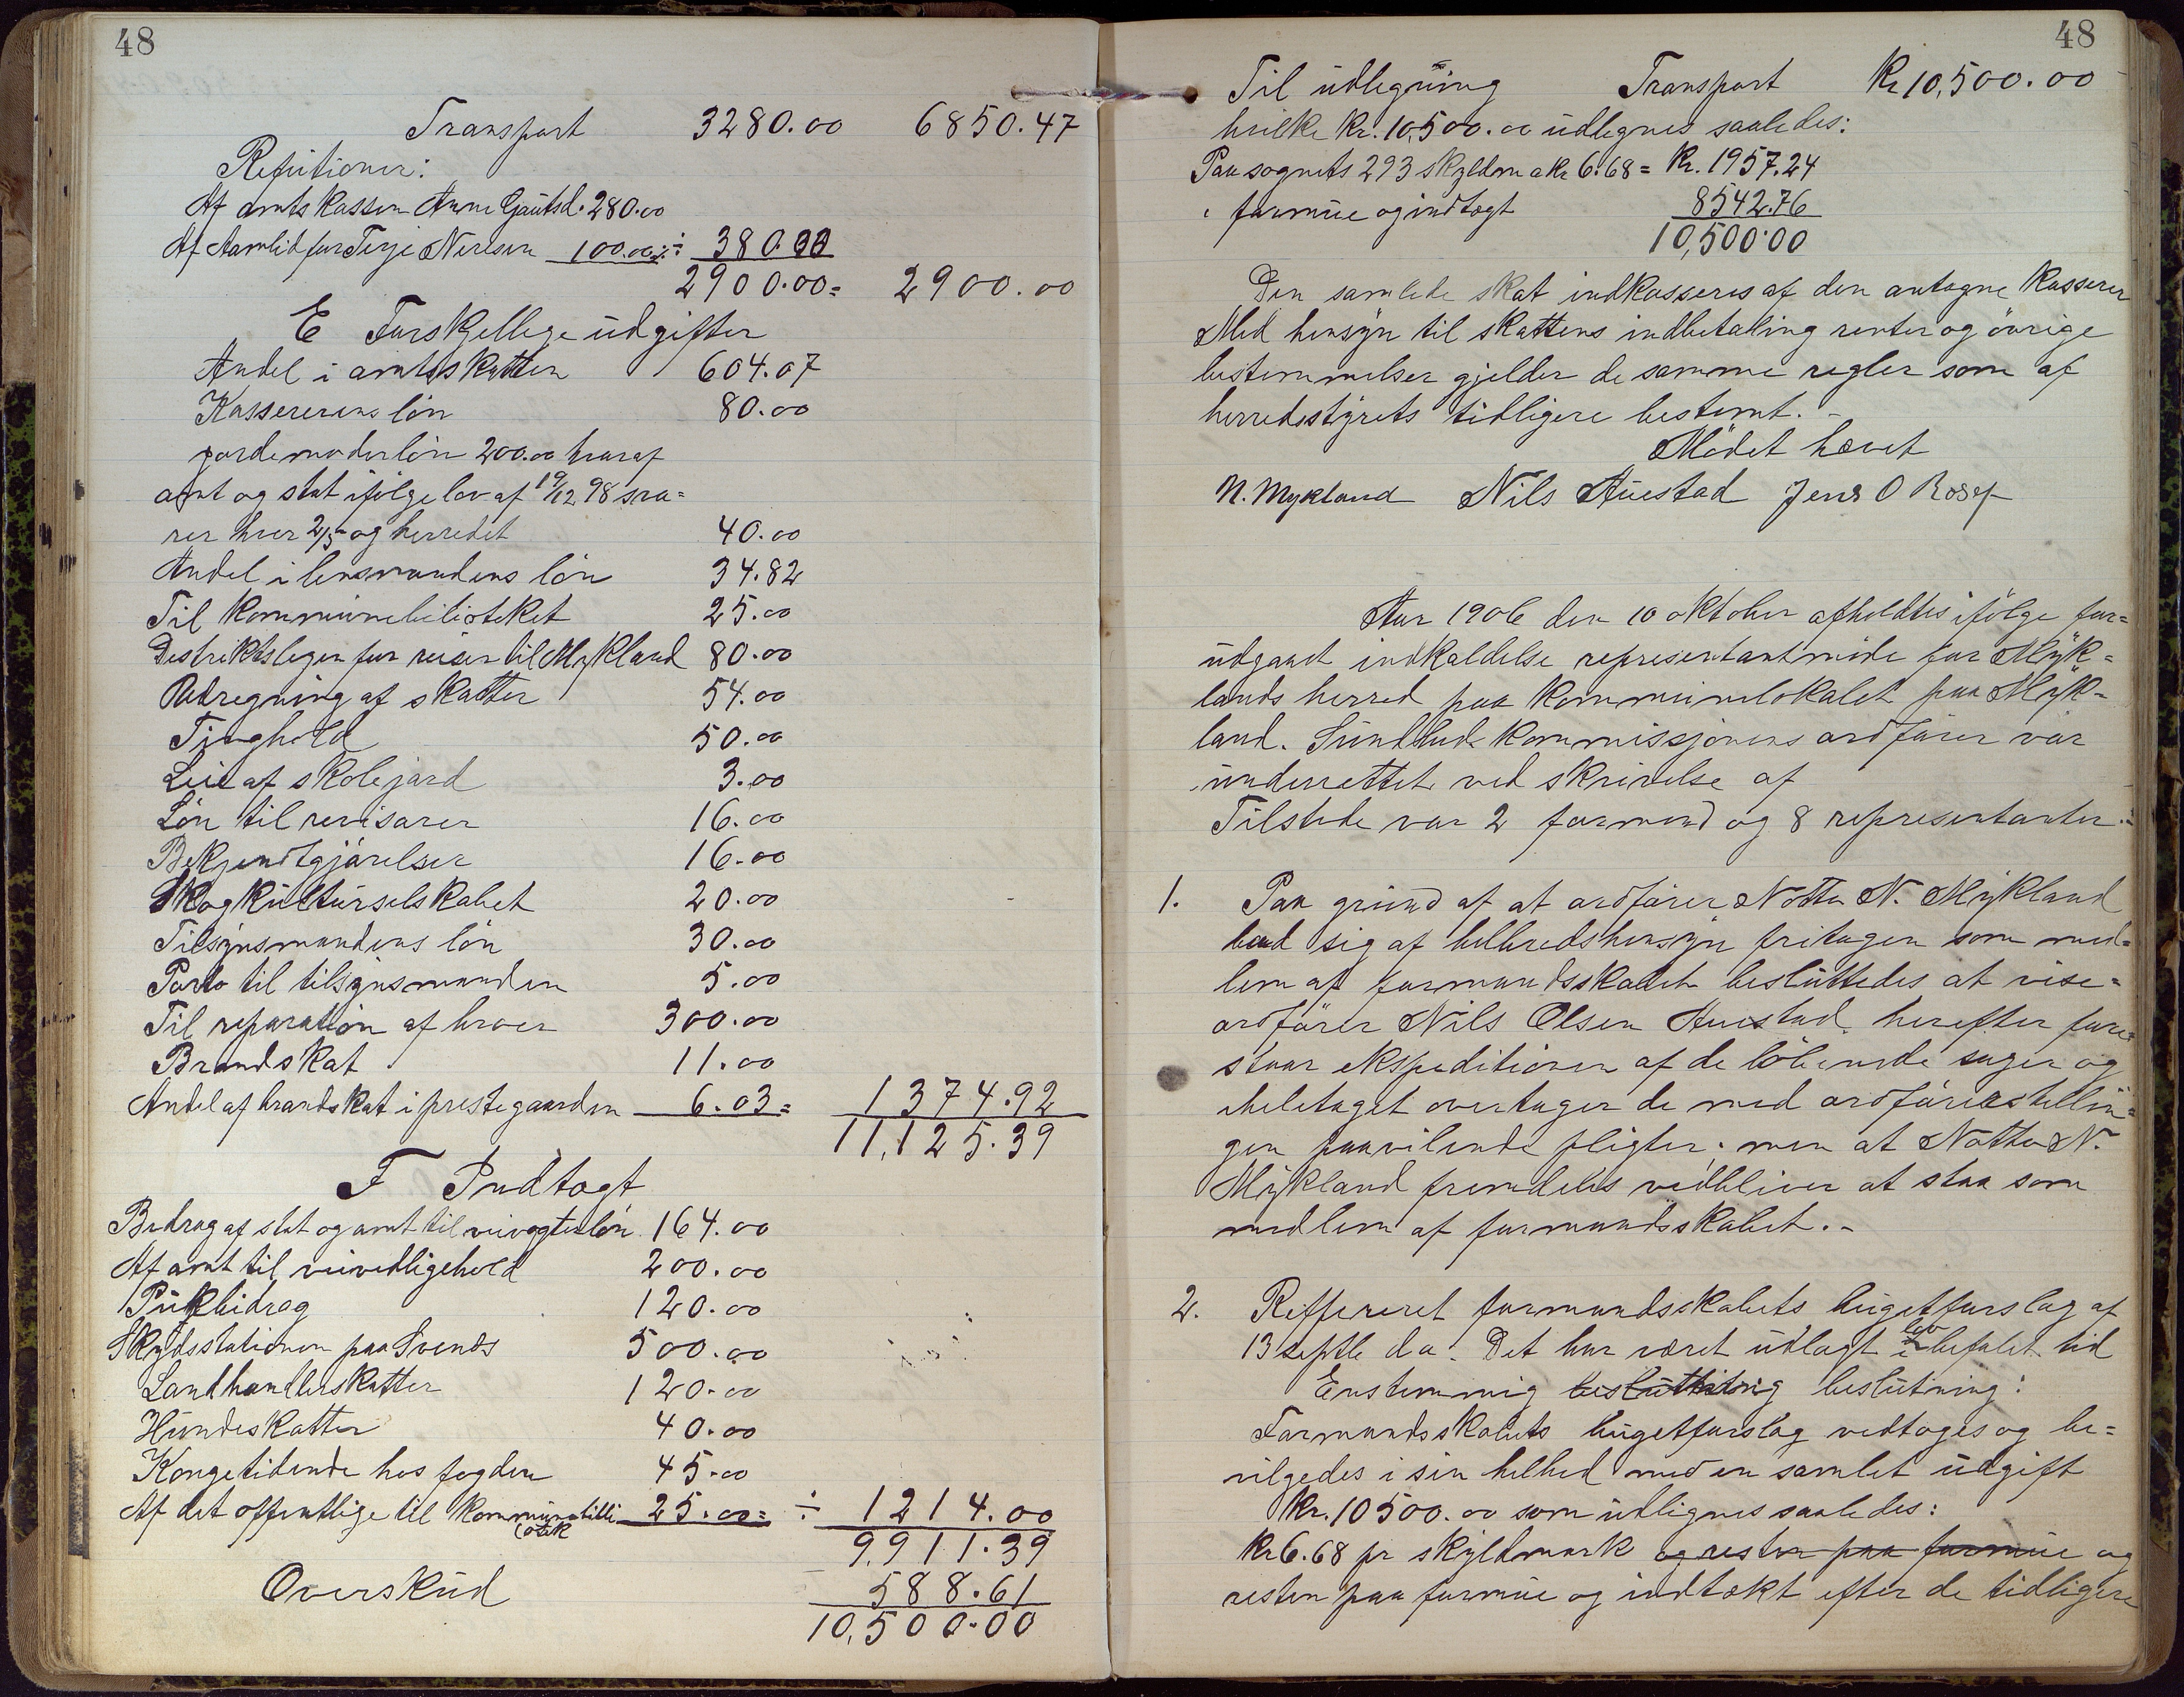 48
Transport 3280.00 6850.47
Refutioner:
Af amtskassen Anne Gautsd. 280.00
Af Aamlid for Terje Nirisen 100.00 ÷ 380.00
2900.00 = 2900.00
E Forskjellege udgifter
Andel i amtsskatten 604.07
Kassererens lön 80.00
jordemoderlön 200.00 hvoraf
amt og stat ifölge lov af 19/12 98 sva=
rer hver 2/5 og herredet 40.00
Andel i lensmandens lön 34.82
Til kommunebiblioteket 25.00
Destriktslegen for reiser til Mykland 80.00
Udregning af skatter 54.00
Tinghold 50.00
Leie af skolejord 3.00
Lön til revisorer 16.00
Bekjendtgjörelser 16.00
Skogkulturselskabet 20.00
Tilsynsmandens lön 30.00
Porto til tilsynsmanden 5.00
Til reparation af broer 300.00
Brandskat 11.00
Andel af brandskat i prestegaarden 6.03 = 1374.92
11,125.39
F Indtægt
Bedrag af stat og amt til veivogterlön 164.00
Af amt til veivedligehold 200.00
Pukbidrag 120.00
Skydsstationen paa Svends 500.00
Landhandlerskatter 120.00
Hundeskatter 40.00
Kongetidende hos fogden 45.00
Af det offentlige til kommunebibli 25.00 = ÷ 1214.00
otek
9,911.39
Overskud 588.61
10,500.00
48
Til udlegning Transport Kr 10,500.00
hvilke Kr. 10,500.00 udlegnes saaledes:
Paa sognets 293 skyldm a kr 6.68 = Kr. 1957.24
" formue og indtægt 8542.76
10,500.00
Den samlede skat indkasseres af den antagne kasserer
Med hensyn til skattens indbetaling renter og övrige
bestemmelser gjelder de samme regler som af
herredsstyrets tidligere bestemt. -
Mödet hævet
N. Mykland Nils Auestad Jens O Rosef
Aar 1906 den 10 oktober afholdtes ifölge for=
udgaaet indkaldelse representantmöde for Myk=
lands herred paa kommunelokalet paa Myk=
land. Sundhedskommissjonens ordförer var
underrettet ved skrivelse af
Tilstede var 2 formend og 8 representanter.
1. Paa grund af at ordförer Notto N. Mykland
bad sig af helbredshensyn fritagen som med=
lem af formandsskabet besluttedes at vise=
ordförer Nils Olsen Auestad herefter fore=
staar ekspeditionen af de löbende sager og
iheletaget overtager de med ordförerstellin=
gen paavilende pligter; men at Notto N.
Mykland fremdeles vedbliver at staa som
medlem af formandsskabet. -
2. Reffereret formandsskabets bugetforslag af
13 septbr d a. Det har været udlagt i lov befalet tid
Enstemmig beslutning:
Formandsskabets bugetforslag vedtoges og be=
vilgedes i sin helhed med en samlet udgift
Kr. 10500.00 som udlignes saaledes:
Kr 6.68 pr skyldmark og resten paa formue og
resten paa formue og indtækt efter de tidligere